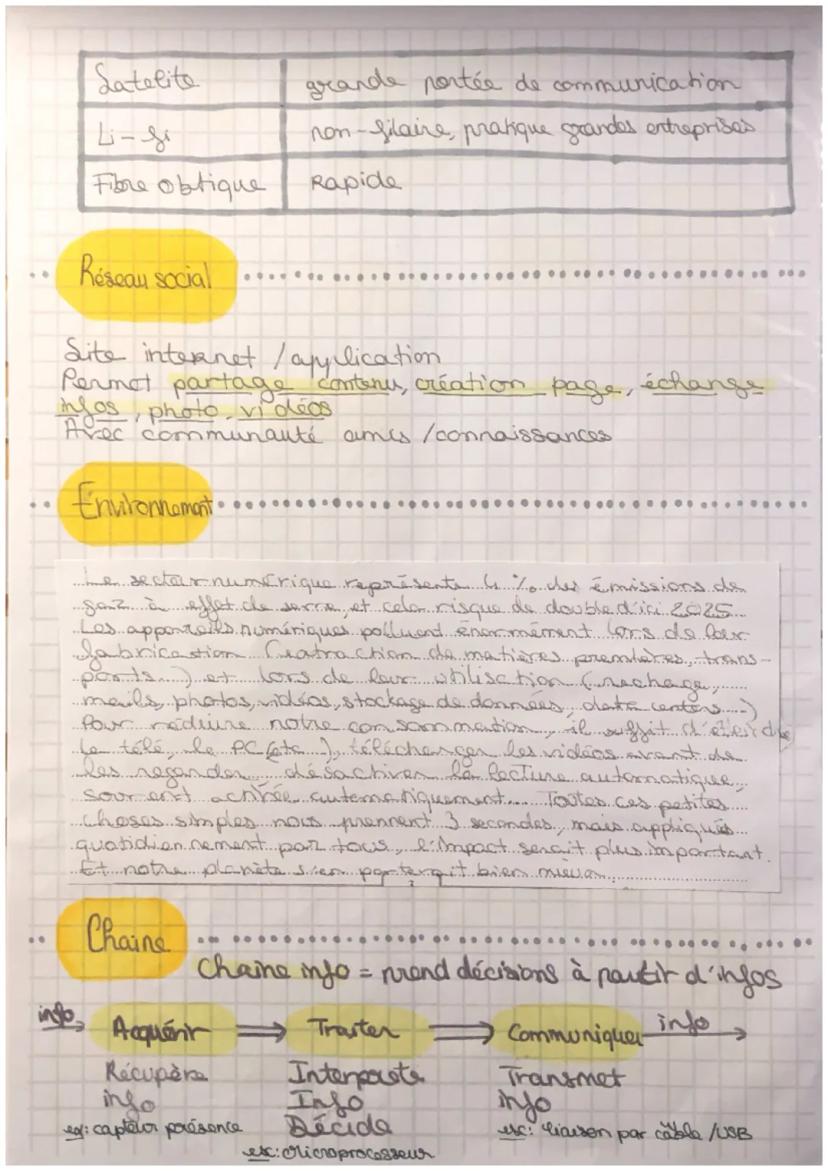 Satelite grande portée de communication
Li-fi non-filaire, pratique grandes entreprises
Fibre obtique Rapide
Réseau social
Site internet / application
Permet partage contenu, création page, échange
infos, photo, vidéos
Avec communauté amis / connaissances
Environnement
Le secteur numérique représente 4 % des émissions de
gaz à effet de serre, et cela risque de double d'ici 2025.
Les appareils numériques polluent énormément lors de leur
fabrication (extraction de matières premières, trans-
ports...) et lors de leur utilisation (recharge,
mails, photos, vidéos, stockage de données, data centers...)
Pour réduire notre consommation, il suffit d'éteindre
la télé, le PC (etc...), télécharger les vidéos avant de
les regarder, désactiver la lecture automatique,
souvent activée automatiquement... Toutes ces petites
choses simples nous prennent 3 secondes, mais appliqués
quotidiennement par tous, l'impact serait plus important.
Et notre planète s'en porterait bien mieux.
Chaine
Chaine info = prend décisions à partir d'infos
info Acquérir ⇒ Traiter ⇒ Communiquer info
Récupère Interprete Transmet
info Info info
ex: capteur présence Décide ex: liaison par câble / USB
ex: Microprocesseur